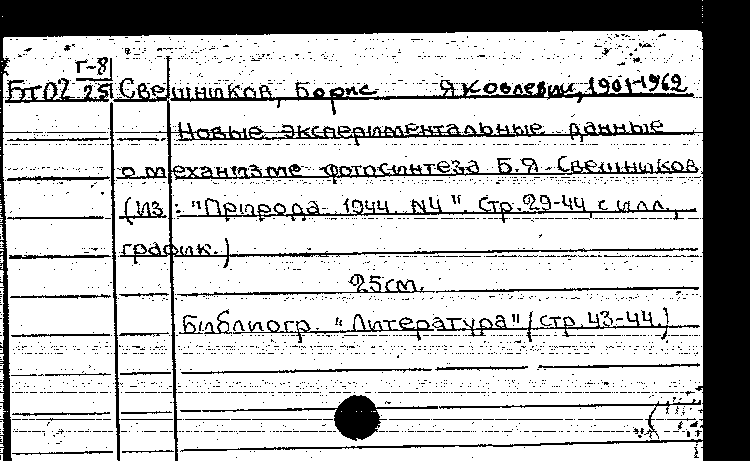 Г-8
БТ02 25 Свешников, Борис Яковлевич, 1901-1962
Новые экспериментальные данные
о механизме фотосинтеза Б.Я. Свешников
(Из: "Природа. 1944. N4". Стр. 29-44, с илл.,
график.)
25см.
Библиогр. "Литература" (стр. 43-44.)